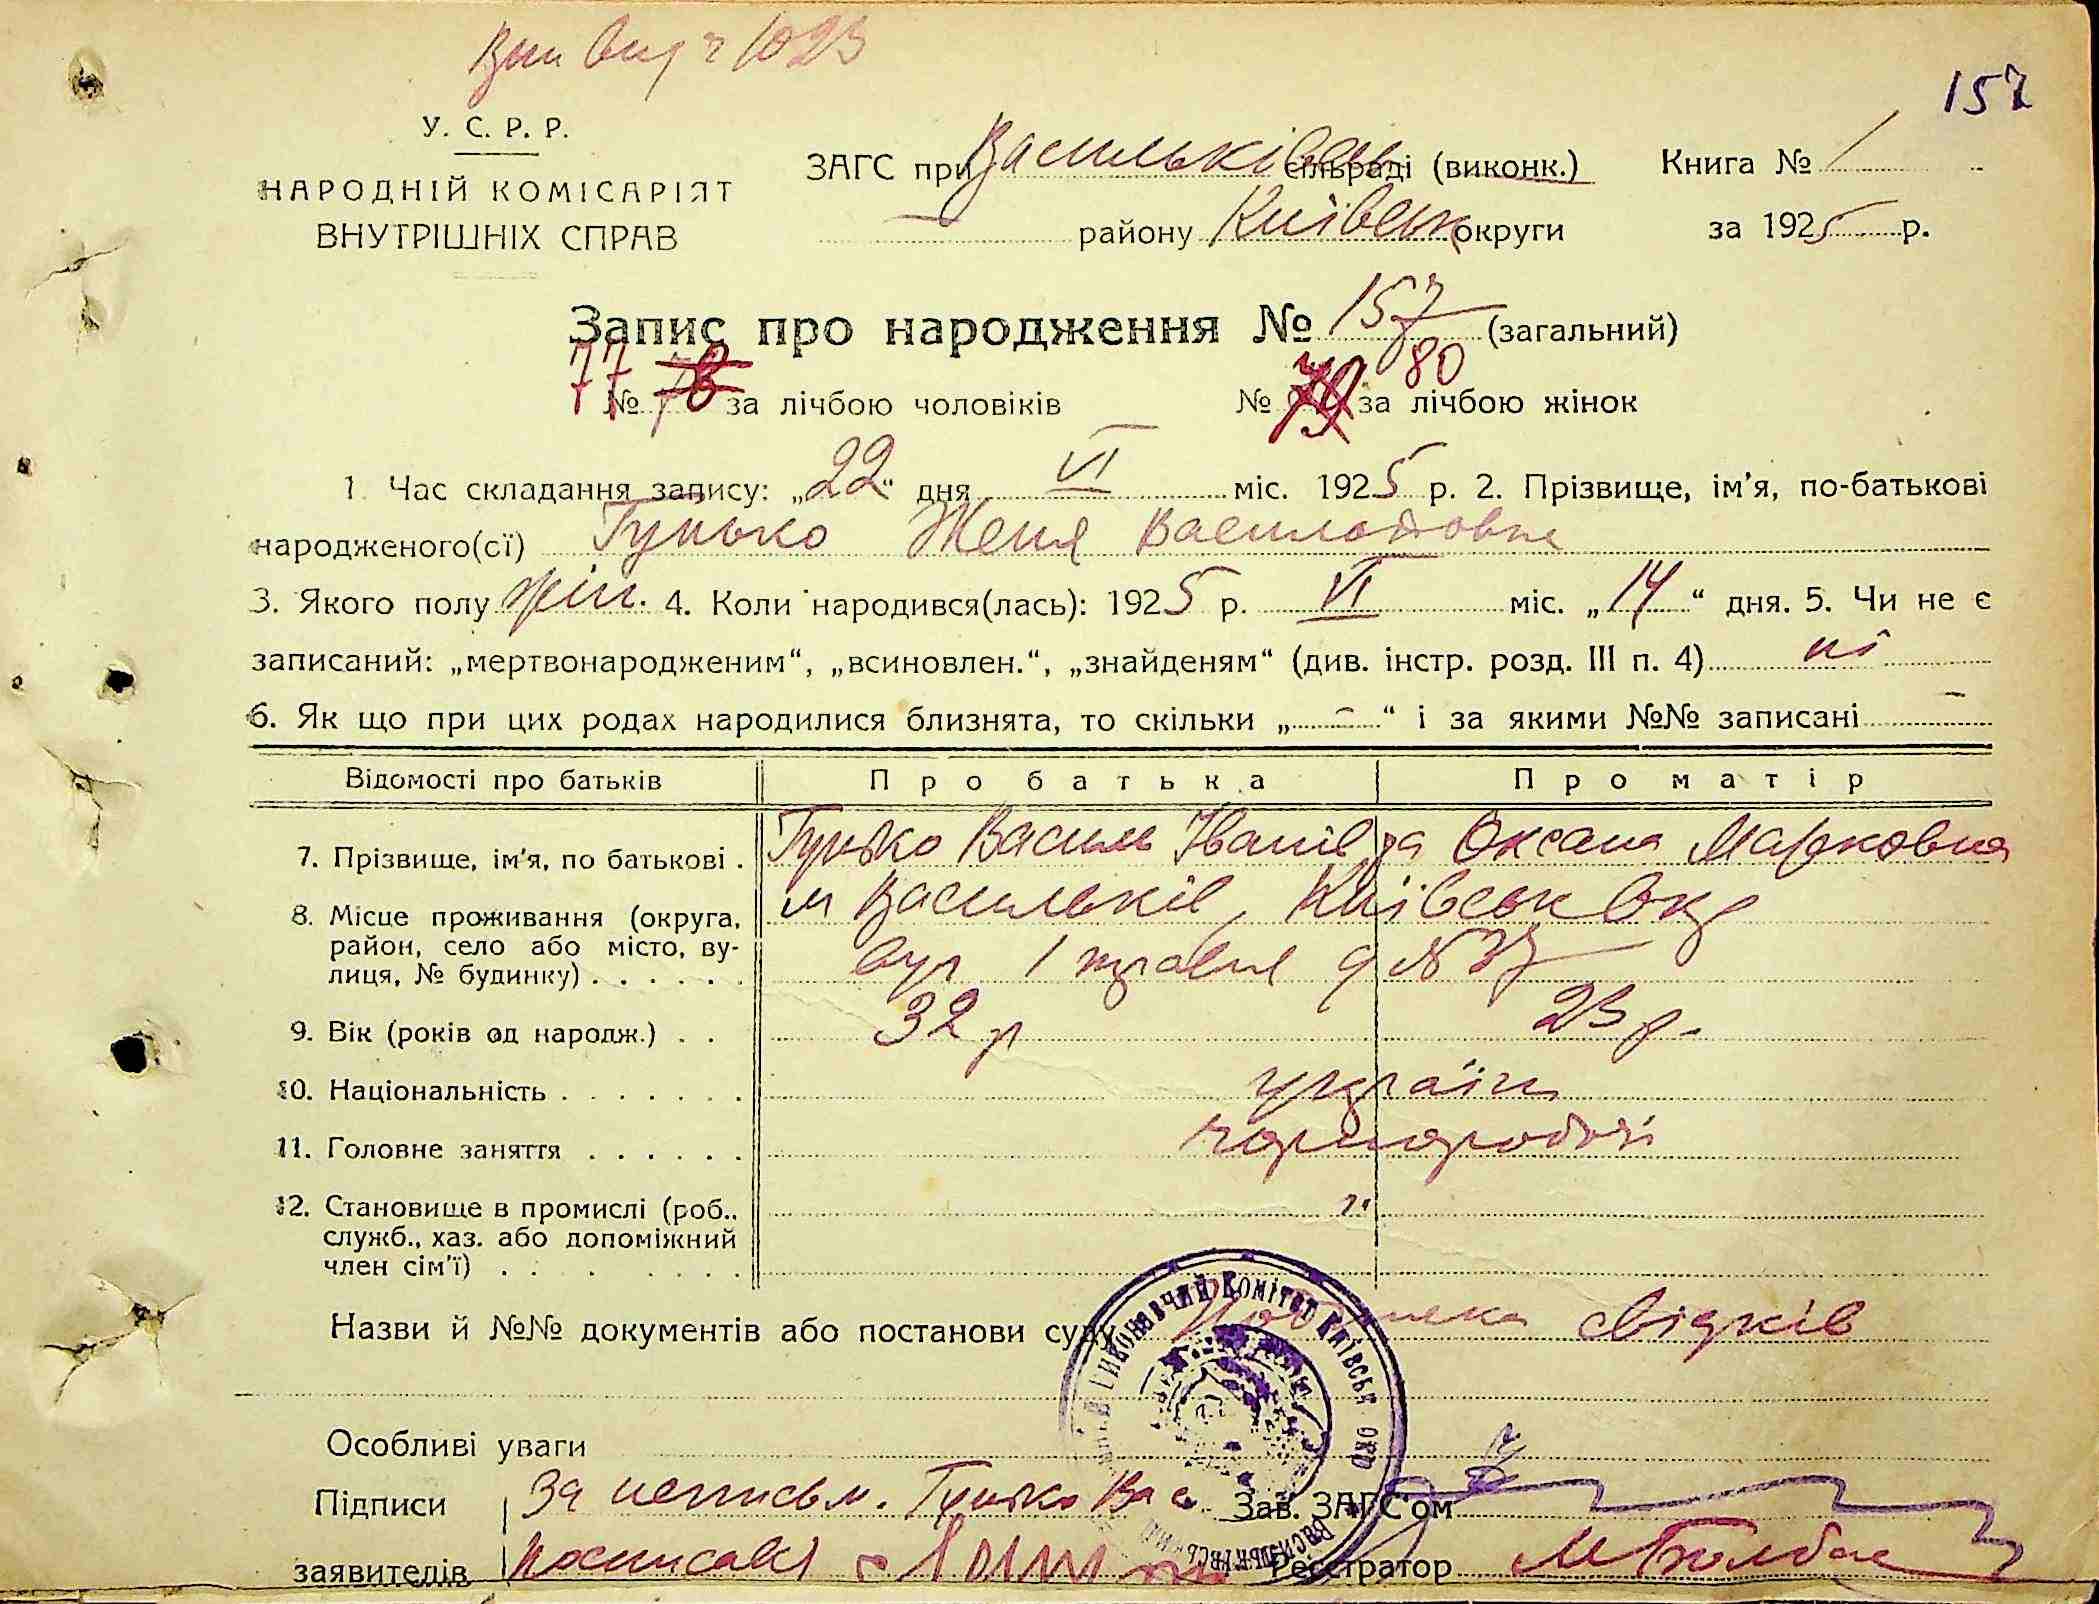 Вик Окр. 1023
157
У. С. Р. Р.
НАРОДНІЙ КОМІСАРІЯТ
ВНУТРІШНІХ СПРАВ
ЗАГС при Васильківськ сільраді (виконк.) Книга № 1
району Київськ округи за 1925 р.
Запис про народження № 157 (загальний)
77 № 78 за лічбою чоловіків № 79 80 за лічбою жінок
1. Час складання запису: „22“ дня VI міс. 1925 р. 2. Прізвище, ім'я, по-батькові
народженого(сї) Гунько Женя Василовна
3. Якого полу жін. 4. Коли народився(лась): 1925 р. VI міс. „14“ дня. 5. Чи не є
записаний: „мертвонародженим“, „всиновлен.“, „знайденям“ (див. інстр. розд. III п. 4) ні
6. Як що при цих родах народилися близнята, то скільки „ - “ і за якими №№ записані -
Відомості про батьків Про батька Про матір
7. Прізвище, ім'я, по батькові . Гунько Василь Іванів та Оксана Марковна
8. Місце проживання (округа, м Васильків, Київськ Окр
район, село або місто, ву- вул 1 травня д № 37
лиця, № будинку) . . . . . .
9. Вік (років од народж.) . . 32 р 23 р.
10. Національність . . . . . . . україн
11. Головне заняття . . . . . . чорноробочі
12. Становище в промислі (роб., "
служб., хаз. або допоміжний
член сім'ї) . . . . . . . .
Назви й №№ документів або постанови суду свідків
Особливі уваги
Підписи За неписьм. Гунько Вас Зав. ЗАГС'ом
заявителів росписавсь Реєстратор МБолбас
ВИКОНАВЧИЙ КОМІТЕТ КИЇВСЬК ОКР